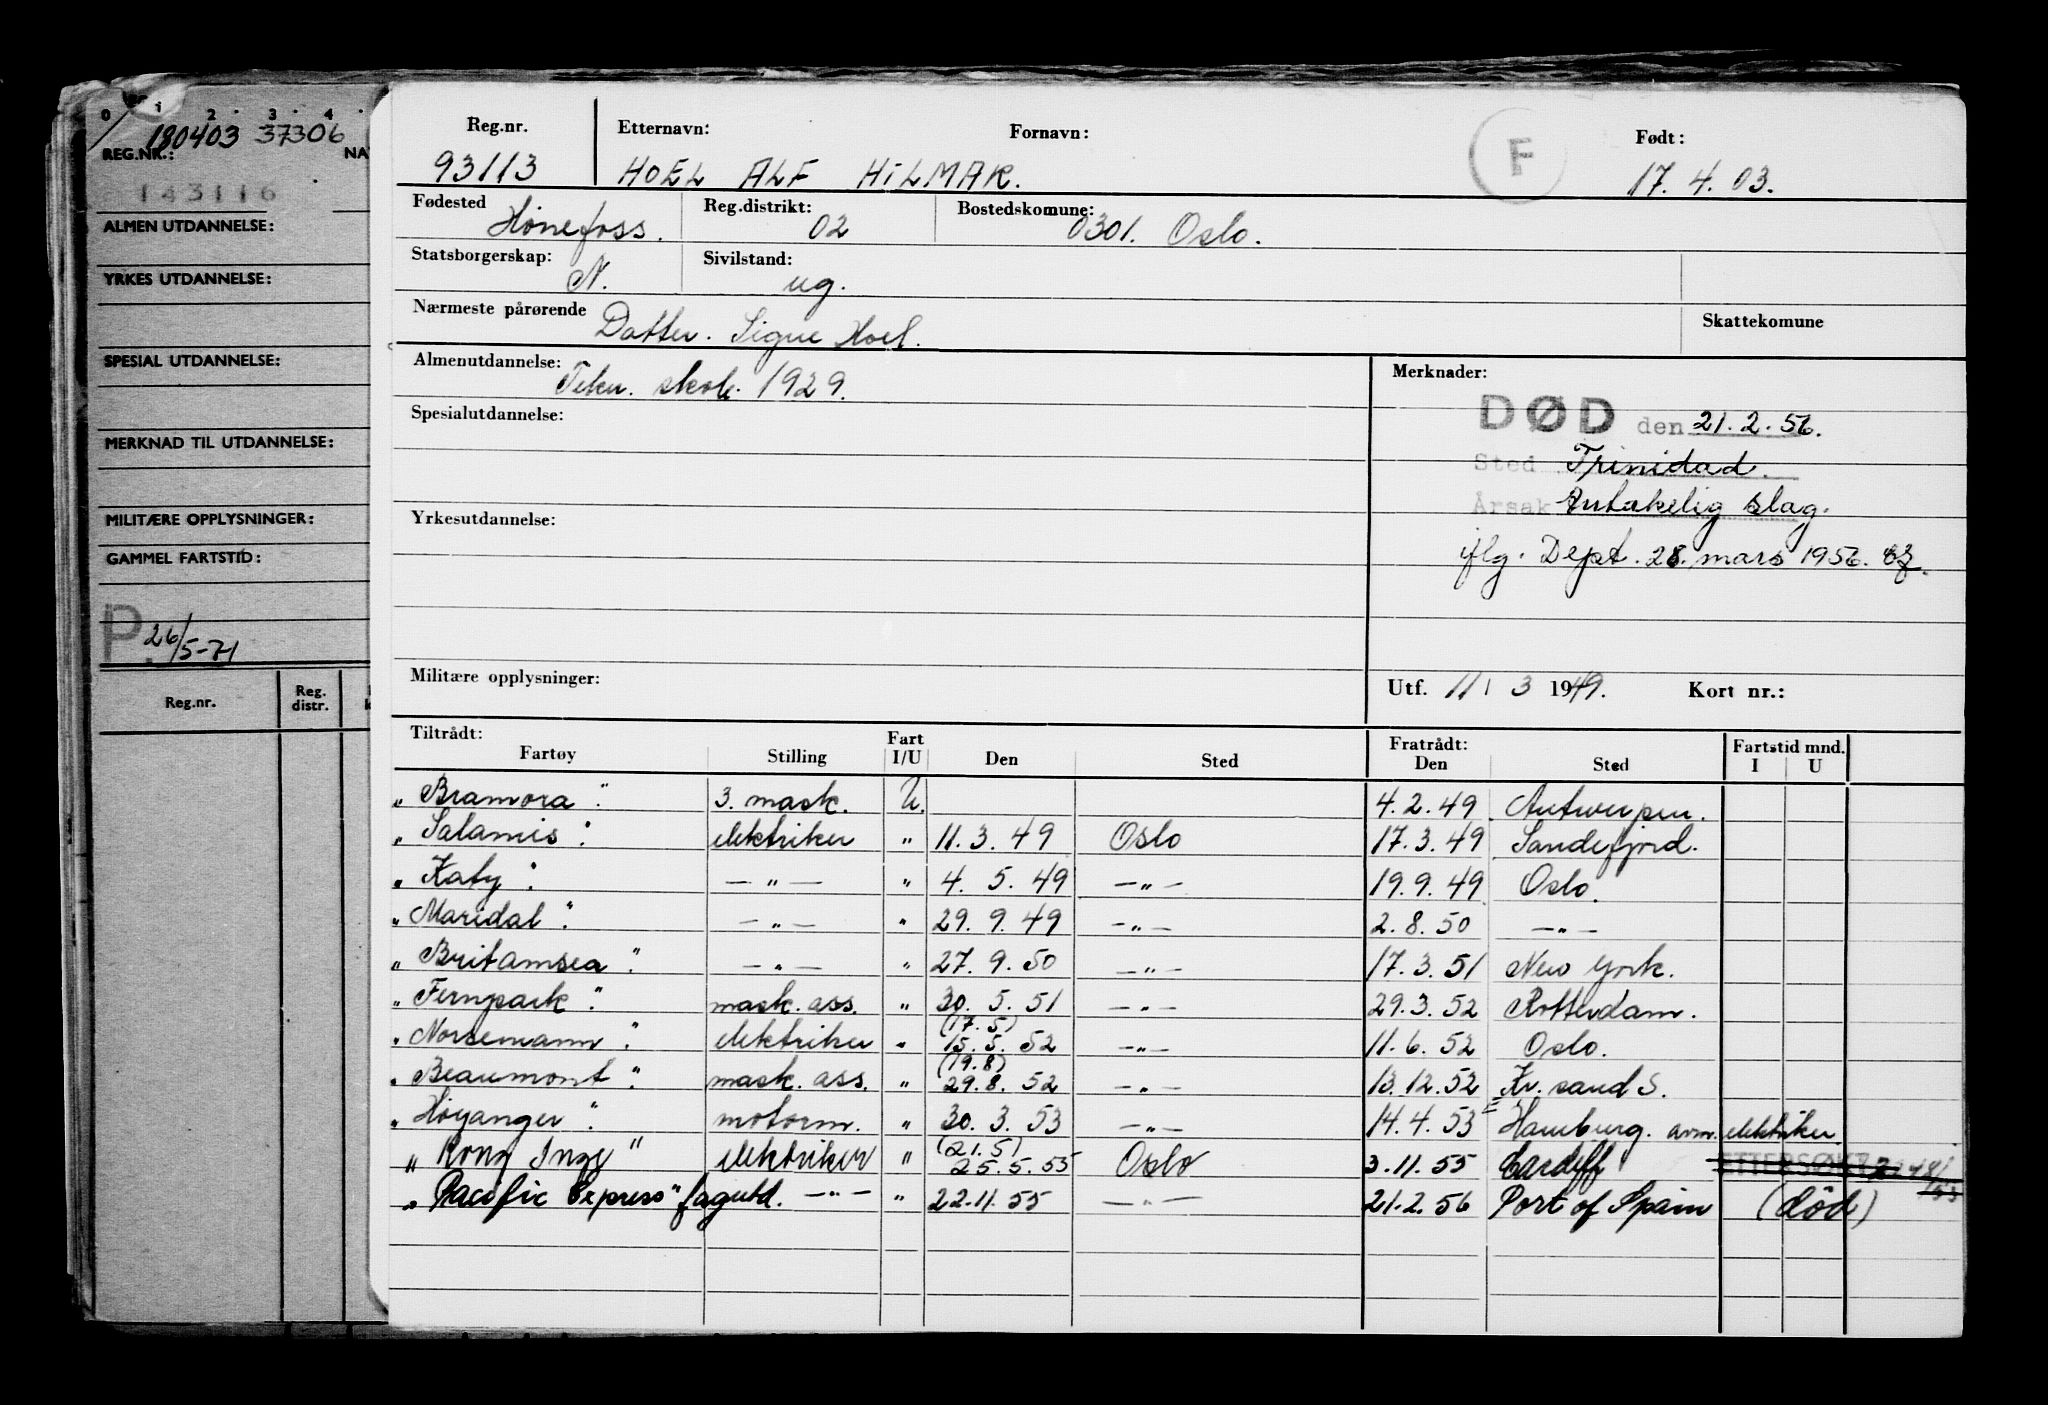 0 1 2 3 4
180403 37306
REG.NR.: NA
143116
ALMEN UTDANNELSE:
YRKES UTDANNELSE:
SPESIAL UTDANNELSE:
MERKNAD TIL UTDANNELSE:
MILITÆRE OPPLYSNINGER:
GAMMEL FARTSTID:
P. 26/5-71
Reg.nr. Reg. distr.
Reg.nr. Etternavn: Fornavn: F Født:
93113 HOEL ALF HILMAR. 17. 4. 03.
Fødested Reg.distrikt: Bostedskomune:
Hønefoss. 02 0301. Oslo.
Statsborgerskap: Sivilstand:
N. ug.
Nærmeste pårørende Datter. Signe Hoel. Skattekomune
Almenutdannelse: Tekn. skole. 1929. Merknader:
Spesialutdannelse: DØD den 21. 2. 56.
Sted Trinidad.
Årsak Antakelig slag.
Yrkesutdannelse:
iflg. Dept. 28. mars 1956.
Militære opplysninger: Utf. 11 / 3 1949. Kort nr.:
Tiltrådt: Fart Fratrådt: Fartstid mnd.
Fartøy Stilling I/U Den Sted Den Sted I U
„ Bramora ". 3. mask. U. 4. 2. 49 Antwerpen.
„ Salamis ". elektriker " 11. 3. 49 Oslo 17. 3. 49 Sandefjord.
„ Katy ". — " — " 4. 5. 49 — " — 19. 9. 49 Oslo.
„ Maridal ". — " — " 29. 9. 49 — " — 2. 8. 50 — " —
„ Britamsea ". — " — " 27. 9. 50 — " — 17. 3. 51 New York.
„ Fernpark ". mask. ass. " 30. 5. 51 — " — 29. 3. 52 Rotterdam.
(17. 5)
„ Norsemann ". elektriker " 15. 5. 52 — " — 11. 6. 52 Oslo.
(19. 8)
„ Beaumont ". mask. ass. " 29. 8. 52 — " — 13. 12. 52 Kr. sand S.
„ Høyanger ". motorm. " 30. 3. 53 — " — 14. 4. 53 Hamburg. avm. elektriker.
(21. 5)
„ Kong Inge " elektriker " 25. 5. 55 Oslo 3. 11. 55 Cardiff ETTERSØKT
„ Pacific Express " fagutd. — " — " 22. 11. 55 — " — 21. 2. 56 Port of Spain (død)